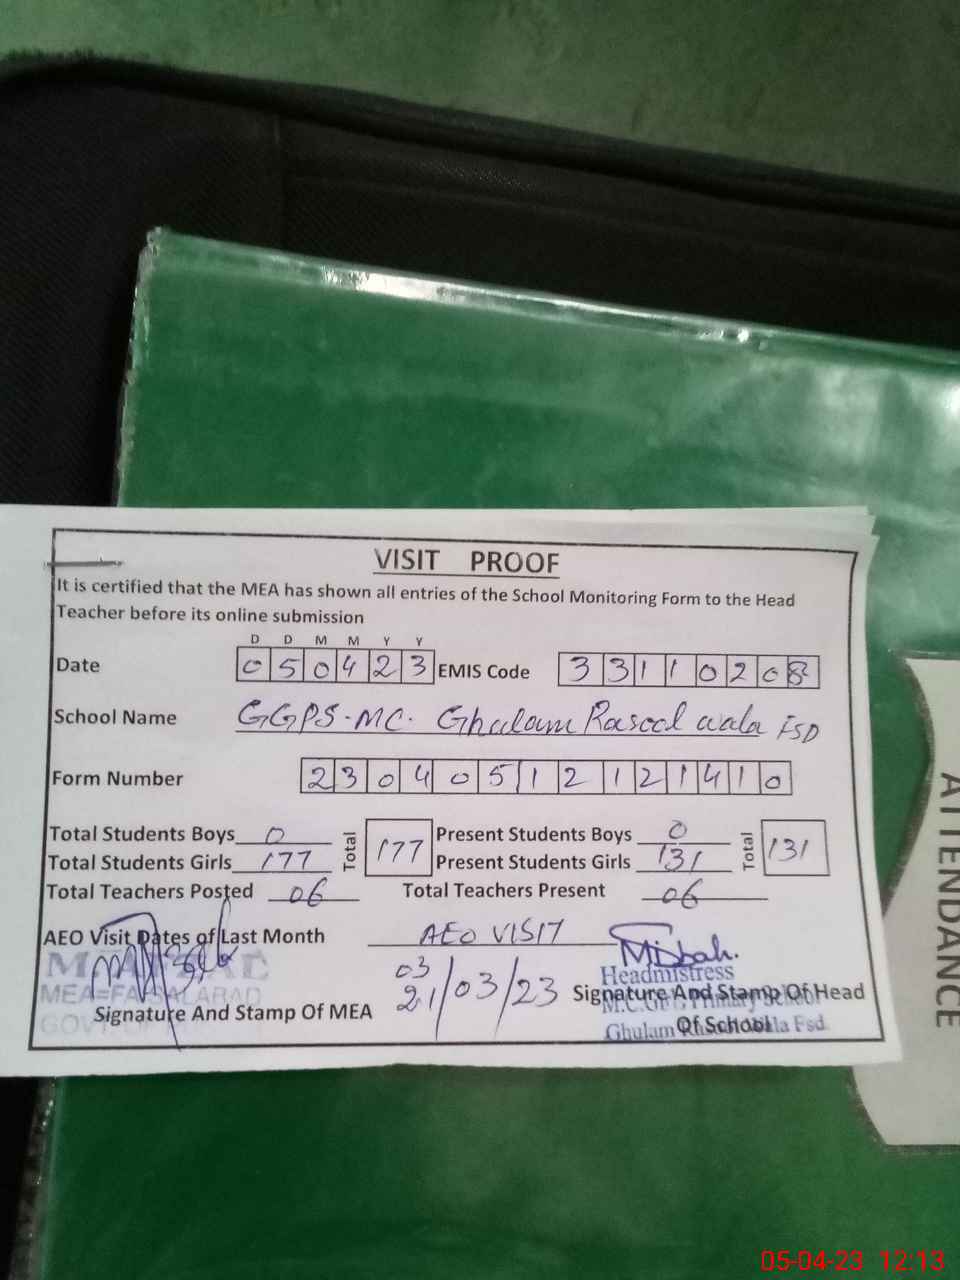 VISIT PROOF
It is certified that the MEA has shown all entries of the School Monitoring Form to the Head
Teacher before its online submission
D D M M Y Y
Date 0 5 0 4 2 3 EMIS Code 3 3 1 1 0 2 0 8
School Name GGPS-MC. Ghulam Rasool wala FSD
Form Number 2 3 0 4 0 5 1 2 1 2 1 4 1 0
Total Students Boys 0 Total 177 Present Students Boys 0 Total 131
Total Students Girls 177 Present Students Girls 131
Total Teachers Posted 06 Total Teachers Present 06
AEO Visit Dates of Last Month AEO VISIT
03
21/03/23
Misbah.
Headmistress
Signature And Stamp Of MEA
Signature And Stamp Of Head
Of School
M.C.G Primary School
Ghulam Wala Fsd.
MEA=FAISALABAD
ATTENDANCE
05-04-23 12:13